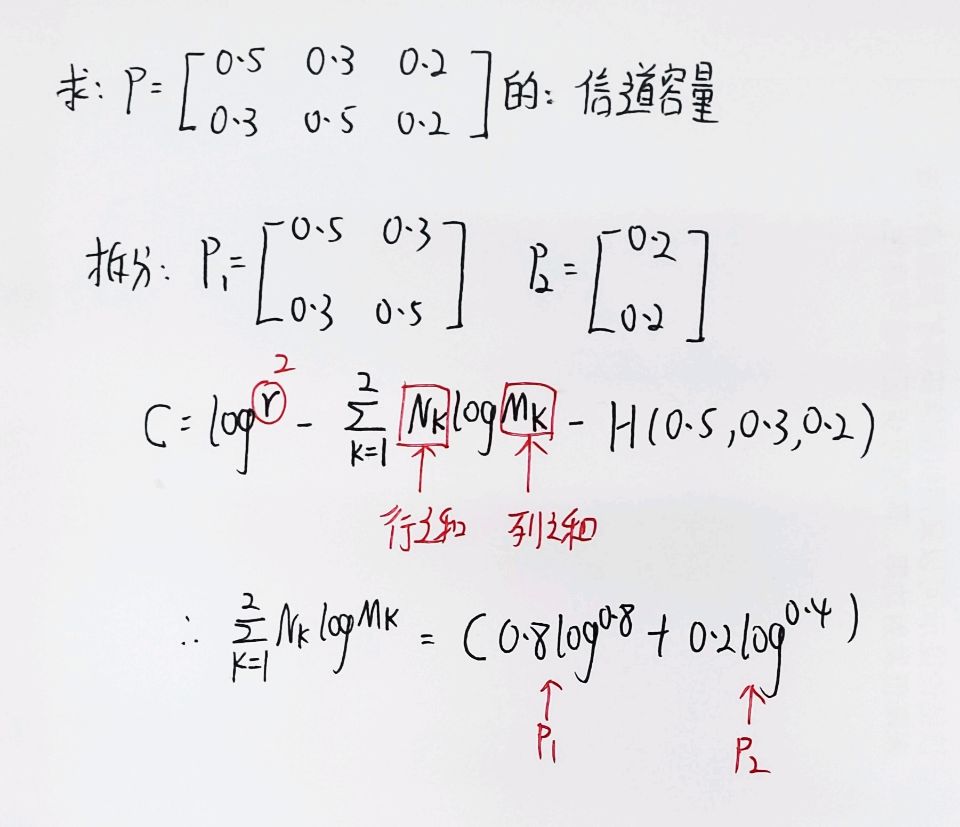 求: P= [ 0.5 0.3 0.2
0.3 0.5 0.2 ] 的: 信道容量
拆分: P₁= [ 0.5 0.3
0.3 0.5 ] P₂= [ 0.2
0.2 ]
2
C = log r - ∑_{k=1}^{2} N_k log M_k - H(0.5,0.3,0.2)
行之和 列之和
∴ ∑_{k=1}^{2} N_k log M_k = (0.8log0.8 + 0.2log0.4)
P₁ P₂